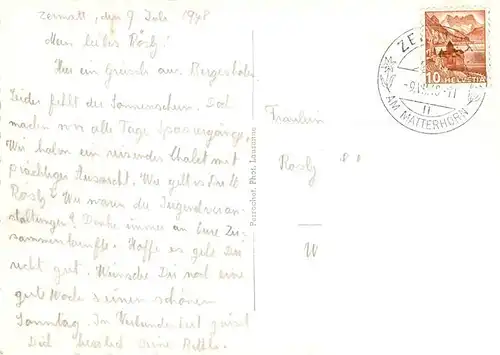 Zermatt, den 9 Juli 1948
Mein liebes Rösly!
Hier ein Grüssli aus Bergeshöhen.
Leider fehlt der Sonnenschein. Doch
machen wir alle Tage Spaziergänge.
Wir haben ein reizendes Chalet mit
prächtiger Aussicht. Wie geht es Dir lb
Rösly? Wie waren die Jugendveran-
staltungen? Denke immer an Eure Zu-
sammenkünfte. Hoffe es gehe Dir
recht gut. Wünsche Dir noch eine
gute Woche & einen schönen
Sonntag. In Verbundenheit grüsst
Dich herzlich Deine
Perrochet, Phot. Lausanne
Fräulein
Rösly
ZE
AM MATTERHORN
10 HELVETIA